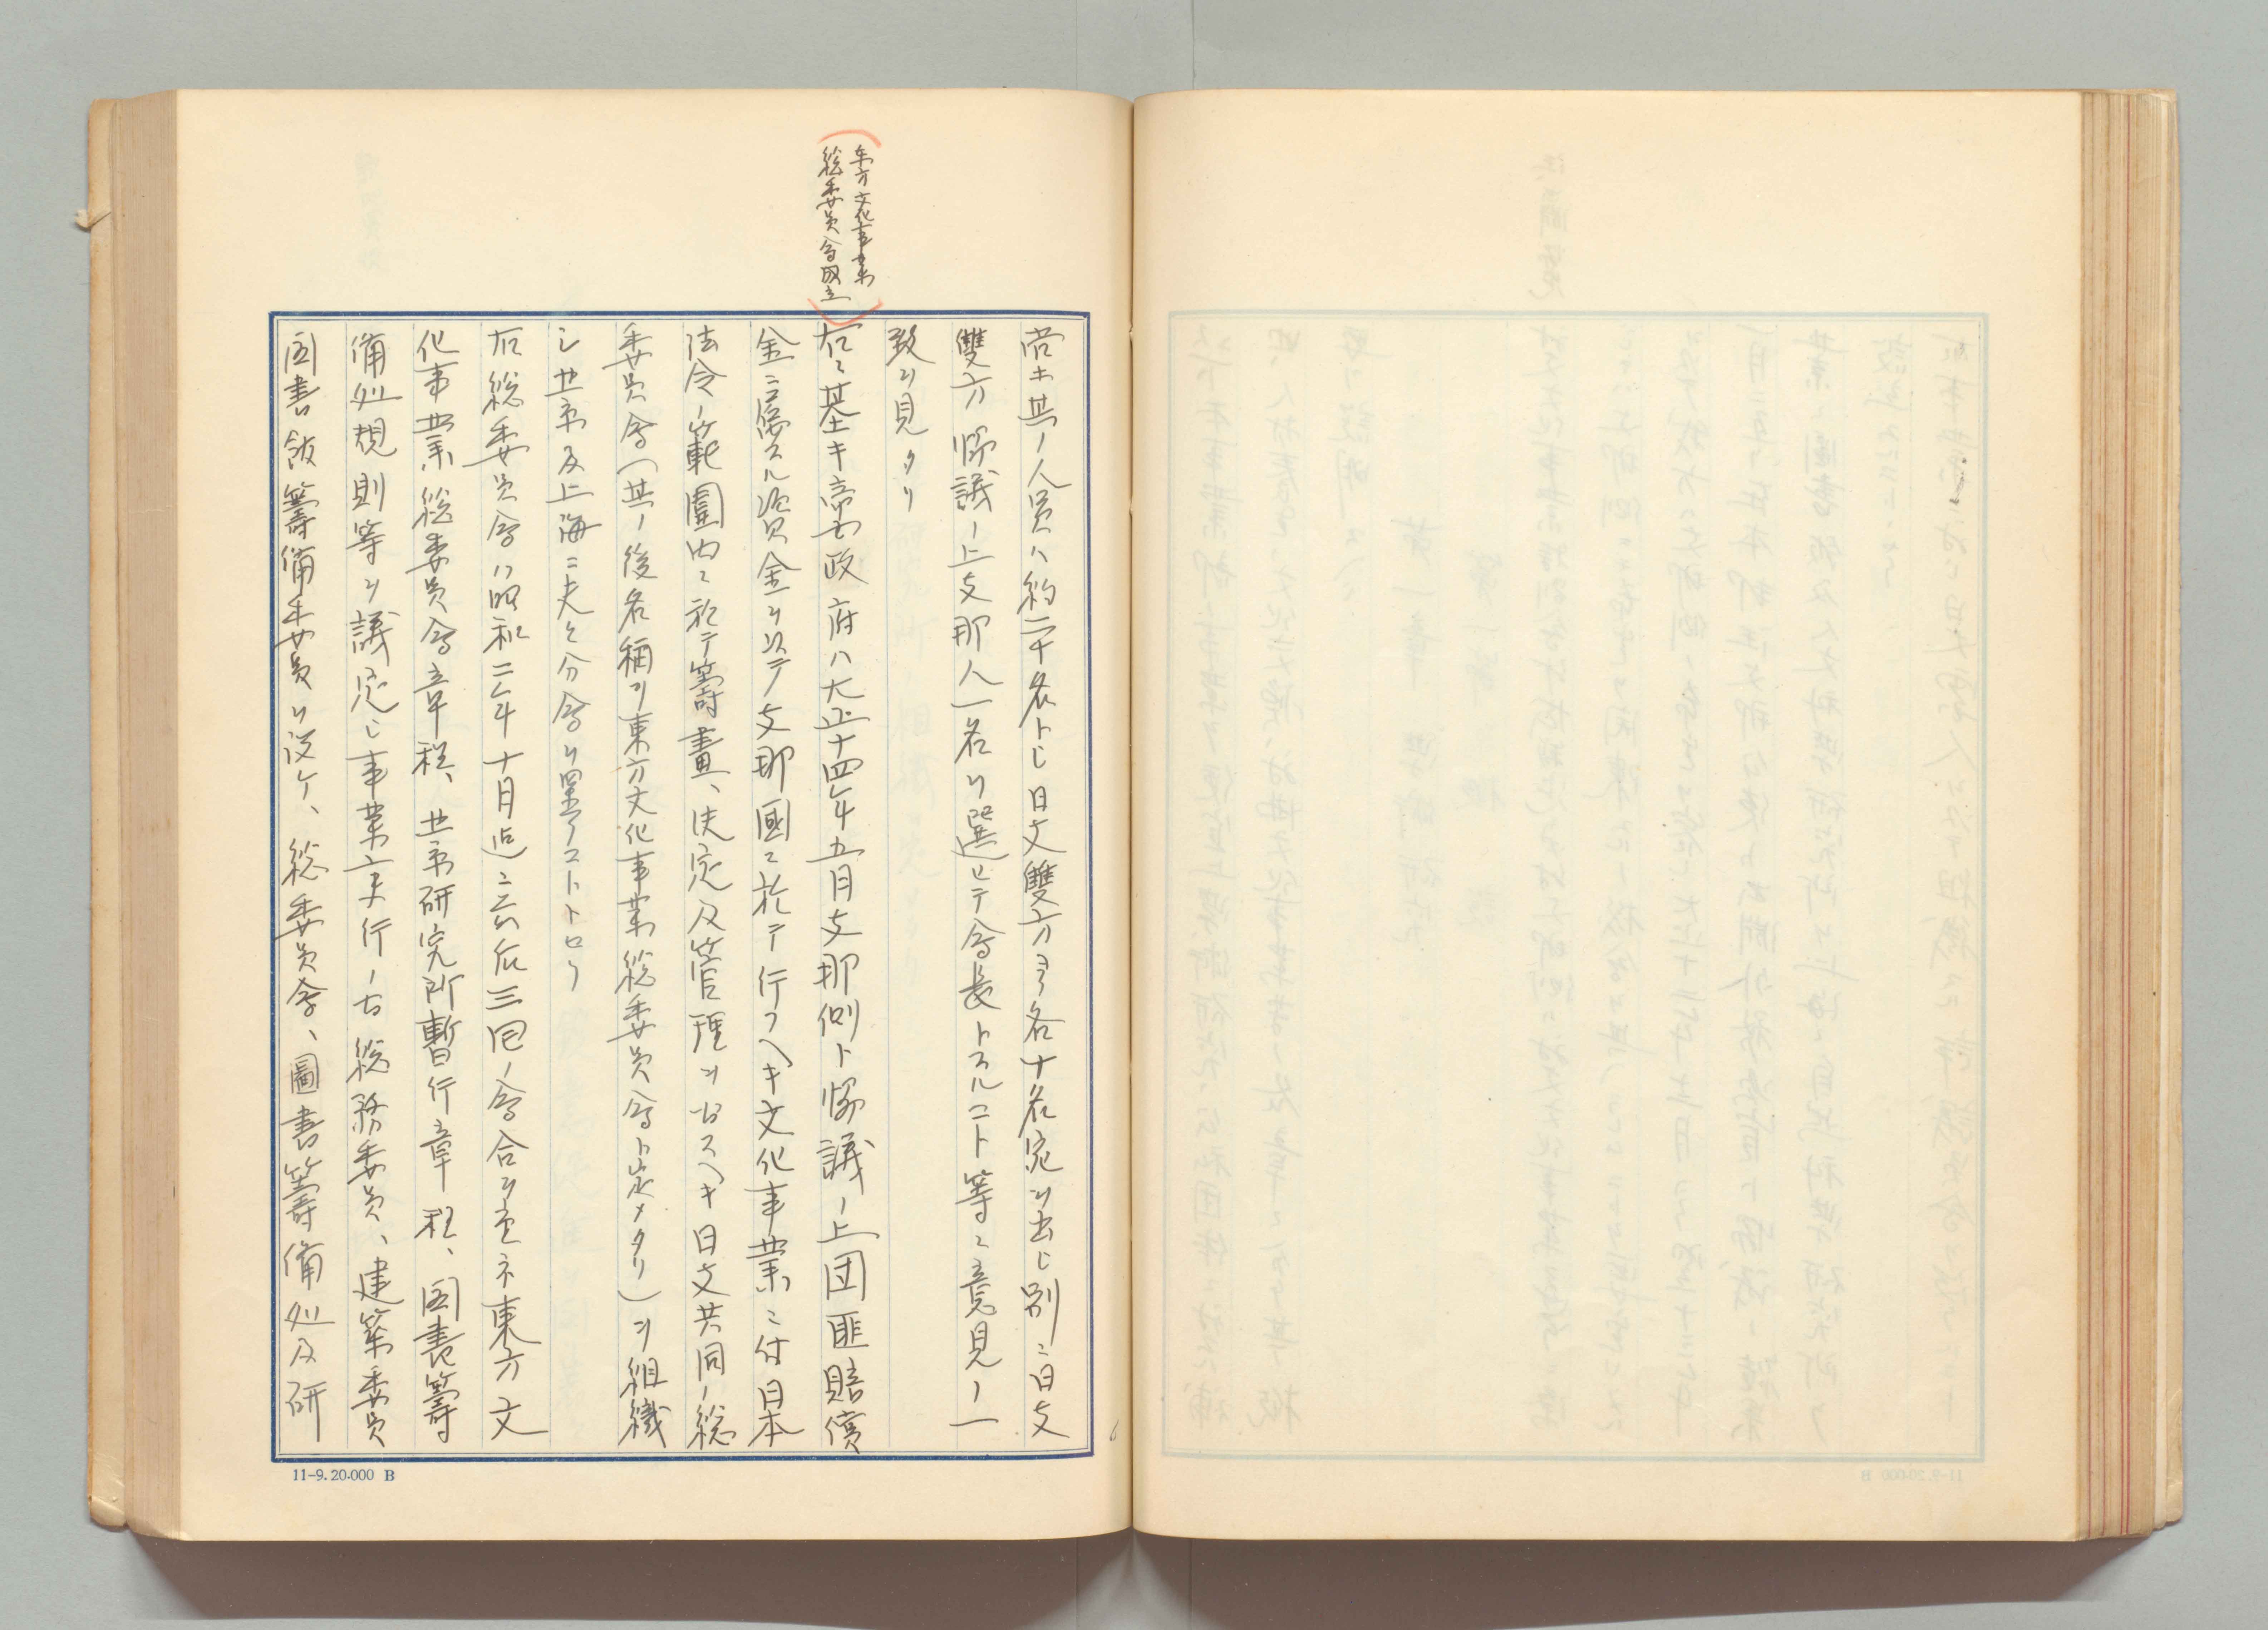 東方文化事業
総委員会成立
営ホ其ノ人員ハ約二十名トシ日支雙方ヨリ各十名宛ヲ出シ別ニ日支
雙方協議ノ上支那人一名ヲ選ヒテ会長トスルコト等ニ意見ノ一
致ヲ見タリ
右ニ基キ帝国政府ハ大正十四年五月支那側ト協議ノ上団匪賠償
金ニ源スル資金ヲ以テ支那國ニ於テ行フヘキ文化事業ニ付日本
法令ノ範圍内ニ於テ籌畫、決定及管理ヲ為スヘキ日支共同ノ総
委員会(其ノ後名稱ヲ東方文化事業総委員会ト定メタリ)ヲ組織
シ北京及上海ニ夫々分会ヲ置クコトトセリ
右総委員会ハ昭和二年十月迄ニ前后三回ノ会合ヲ重ネ東方文
化事業総委員会章程、北京研究所暫行章程、図書籌
備処規則等ヲ議定シ事業実行ノ為総務委員、建築委員
図書館籌備委員ヲ設ケ、総委員会、圖書籌備処及研
11-9.20.000 B